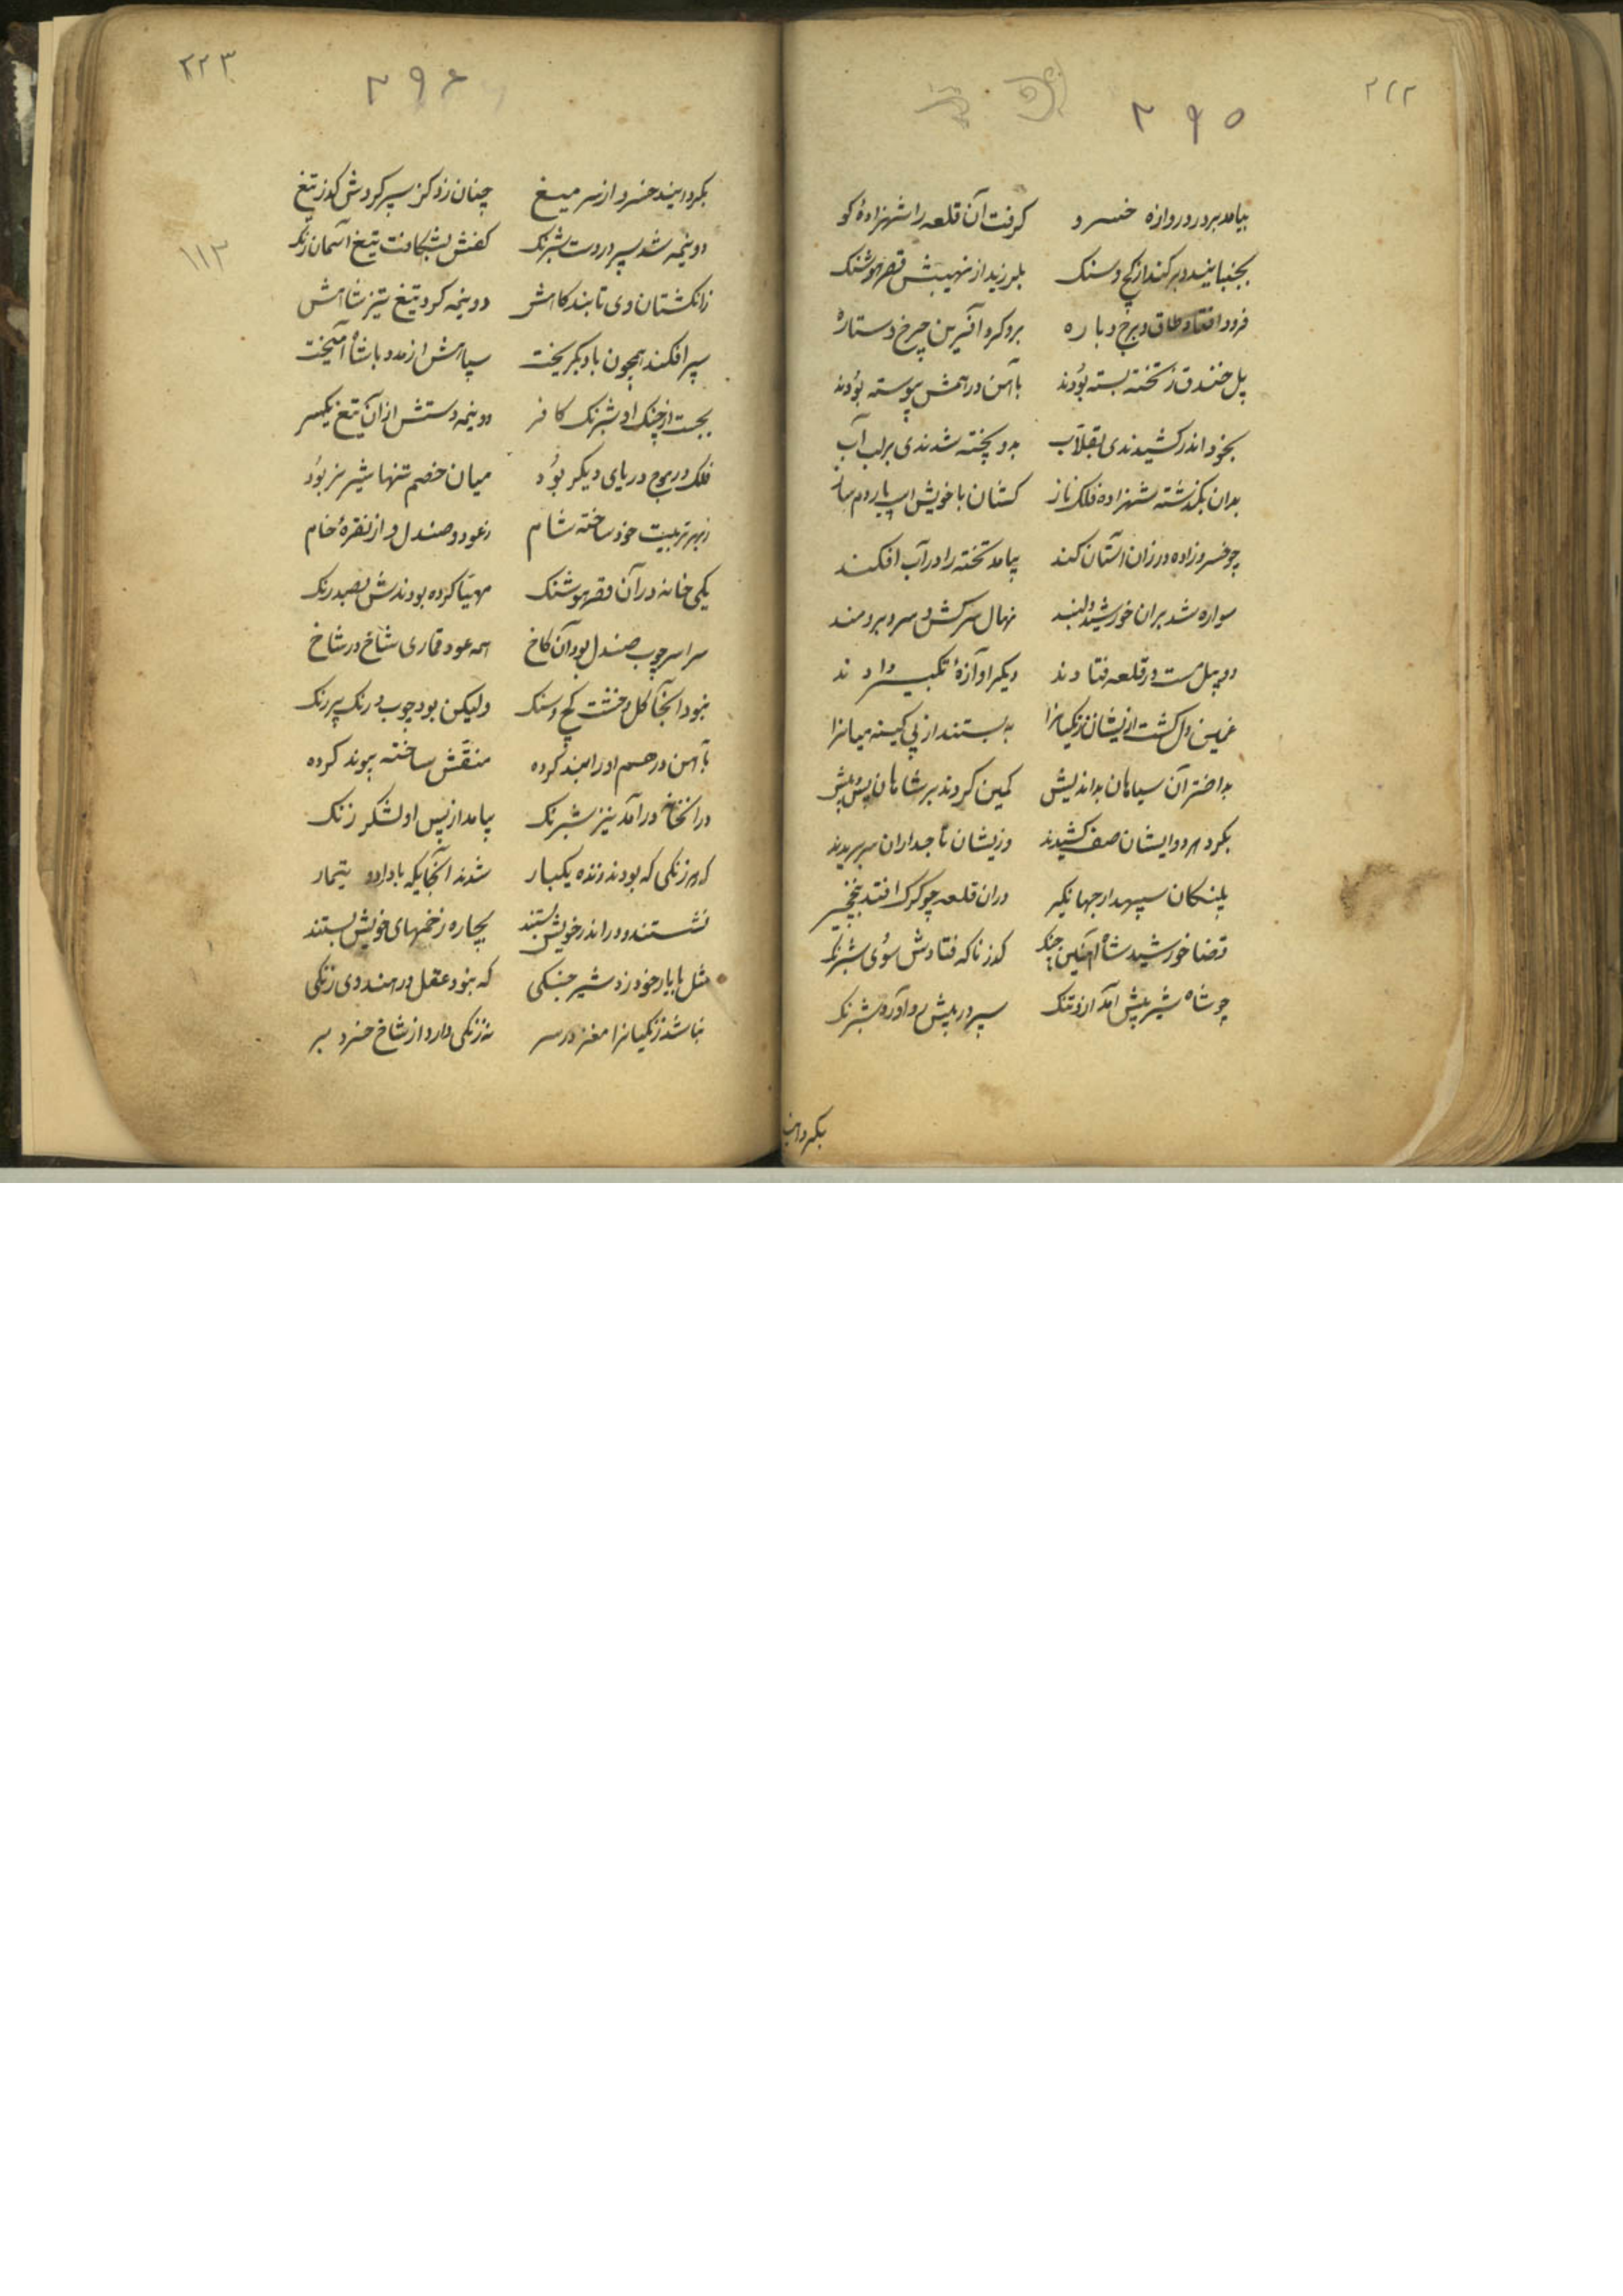 ۲۲۲
۲۹۵
بیامد بر در دروازه خسرو گرفت آن قلعه را شهزادهٔ کو
بجنبانید و برکند از کج و سنک بلرزید از نهیبش قصر هوشنک
فرود افتاد طاق و برج و باره برو کرد آفرین چرخ و ستاره
پل خندق ز تخته بسته بودند بآهن در همش پیوسته بودند
بخود اندر کشیدندی بقلاب بدو پخته شدندی بر لب آب
بدان بکذشته شهزاده فلک ناز کشان با خویش اسپ
چو خسروزاده در زان آستان کند بیامد تخته را در آب افکند
سواره شد بران خورشید دلبند نهال سرکش و سرو برومند
دو پیل مست در قلعه فتادند دیکر آوازهٔ تکبیر دادند
غمین دل کشت ازیشان زنکیانرا به بستند از پی کینه میانرا
بد اختر آن سیاهان بداندیش کمین کردند بر شاهان پس و پیش
بکرد هر دو ایشان صف کشیدند وزیشان تاجداران سر بریدند
پلنکان سپهدار جهانکیر دران قلعه چو کرک افتد بنخچیر
قضا خورشید شاه آهنین چنک کذر ناکه فتادش سوی شبرنک
چو شاه شیر پیش آمد ازو تنک سپر در پیش رو آورد شبرنک
بکردانید
۲۲۳
۲۹۶
۱۱۳
بکردانید خسرو از سر میغ چنان زد کز سپر کردش کذر تیغ
دو نیمه شد سپر در دست شبرنک کفش بشکافت تیغ آسمان رنک
ز انکشتان وی تا بندکاهش دو نیمه کرد تیغ تیز شاهش
سپر افکند همچون باد بکریخت سپاهش از مدد با شاه آمیخت
بجست از چنک او شبرنک کافر دو نیمه دستش از آن تیغ یکسر
فلک در موج دریای دیکر بود میان خصم تنها شیر نر بود
ز بهر تربیت خود ساخته شام ز عود و صندل و از نقرهٔ خام
یکی خانه در آن قصر هوشنک مهیا کرده بودندش بصد رنک
سراسر چوب صندل بود آن کاخ همه عود قماری شاخ در شاخ
نبود آنجا کل و خشت کج و سنک ولیکن بود چوب و رنک بر رنک
بآهن در هم او را بند کرده منقش ساخته پیوند کرده
در آنخانه در آمد نیز شبرنک بیامد از پس او لشکر زنک
که هر زنکی که بودند زنده یکبار شدند آنجایکه با درد و تیمار
نشستند و در اندر خویش بستند بچاره زخمهای خویش بستند
مثل با یار خود زد شیر جنکی که نبود عقل در هندوی زنکی
نباشد زنکیانرا مغز در سر نه زنکی دارد از شاخ خرد بر